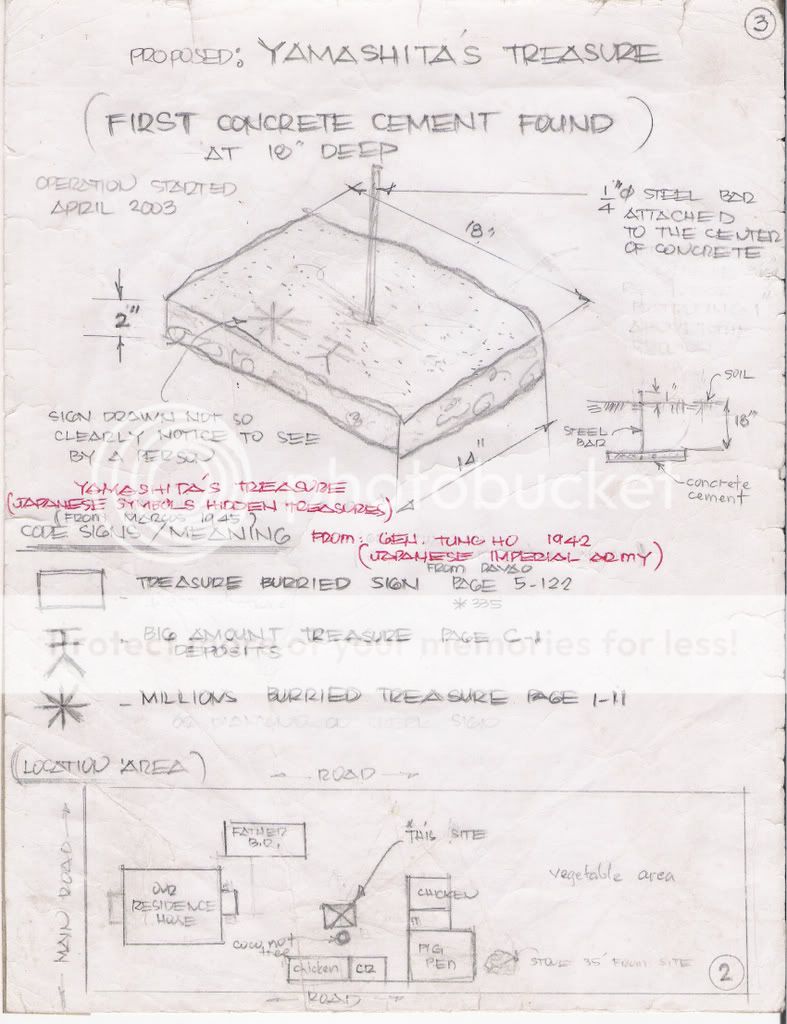 3
PROPOSED: YAMASHITA'S TREASURE
(FIRST CONCRETE CEMENT FOUND)
AT 18" DEEP
OPERATION STARTED
APRIL 2003
1/4"Ø STEEL BAR
ATTACHED
TO THE CENTER
OF CONCRETE
18"
2"
14"
SIGN DRAWN NOT SO
CLEARLY NOTICE TO SEE
BY A PERSON
1"
SOIL
STEEL
BAR
18"
concrete
cement
photobucket
YAMASHITA'S TREASURE
(JAPANESE SYMBOLS HIDDEN TREASURES)
(FROM MARCOS 1945)
CODE SIGNS / MEANING
FROM: GEN. TUNG HO 1942
(JAPANESE IMPERIAL ARMY)
FROM DAVAO
- TREASURE BURRIED SIGN PAGE 5-122
*335
- BIG AMOUNT TREASURE PAGE C-1
DEPOSITS
Protect more of your memories for less!
- MILLIONS BURRIED TREASURE PAGE 1-11
(LOCATION AREA)
ROAD
MAIN ROAD
FATHER
B.R.
* THIS SITE
OUR
RESIDENCE
HOUSE
coconut
tree
chicken
CR
CHICKEN
PIG
PEN
vegetable area
STONE 35' FROM SITE
2
ROAD